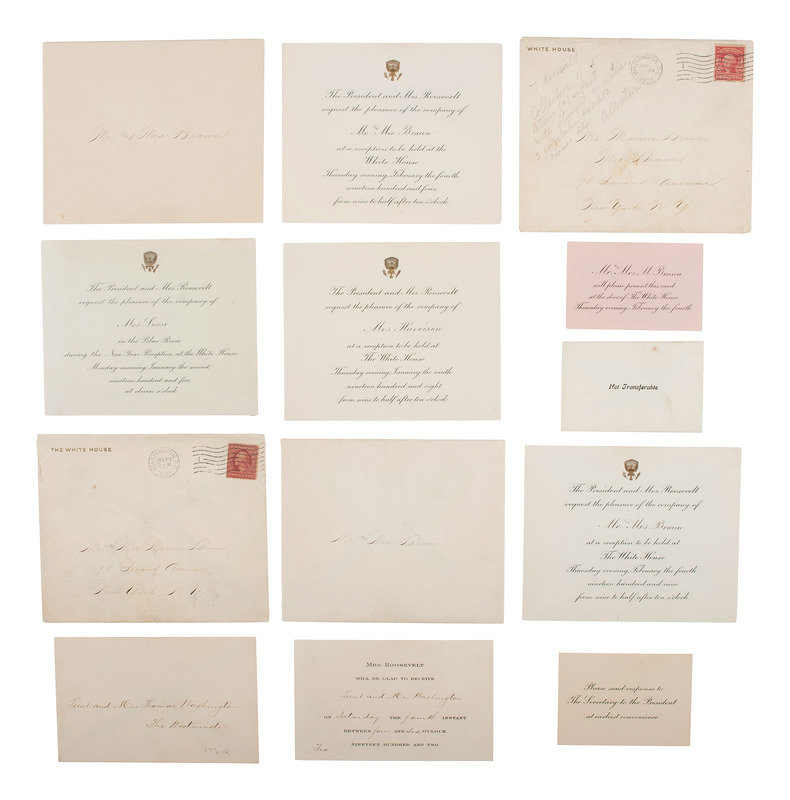 Mr. & Mrs Braun
The President and Mrs. Roosevelt
request the pleasure of the company of
Mr. and Mrs. Braun
at a reception to be held at the
White House
Thursday evening, February the fourth,
nineteen hundred and four,
from nine to half after ten o'clock.
WHITE HOUSE
WASHINGTON, D.C.
Collection
Mrs. Marcus Braun,
78 Second Avenue
New York, N. Y.
The President and Mrs. Roosevelt
request the pleasure of the company of
Mrs. Loose
in the Blue Room
during the New Year Reception at the White House,
Monday morning, January the second,
nineteen hundred and five,
at eleven o'clock.
The President and Mrs. Roosevelt
request the pleasure of the company of
Mrs. Harrison
at a reception to be held at
The White House
Thursday evening, January the ninth
nineteen hundred and eight
from nine to half after ten o'clock
Mr. and Mrs. M. Braun
will please present this card
at the door of The White House
Thursday evening, February the fourth
Not Transferable
THE WHITE HOUSE
WASHINGTON, D.C.
Mr. and Mrs. Marcus Braun,
78 Second Avenue,
New York, N. Y.
Mr. and Mrs. Braun
The President and Mrs. Roosevelt
request the pleasure of the company of
Mr. and Mrs. Braun
at a reception to be held at
The White House
Thursday evening, February the fourth
nineteen hundred and nine
from nine to half after ten o'clock
Lieut and Mrs Thomas Washington
The Westminster
MRS. ROOSEVELT
WILL BE GLAD TO RECEIVE
Lieut and Mrs Washington
ON Saturday THE fourth INSTANT
BETWEEN four AND six O'CLOCK
NINETEEN HUNDRED AND TWO
Tea.
Please send response to
The Secretary to the President
at earliest convenience